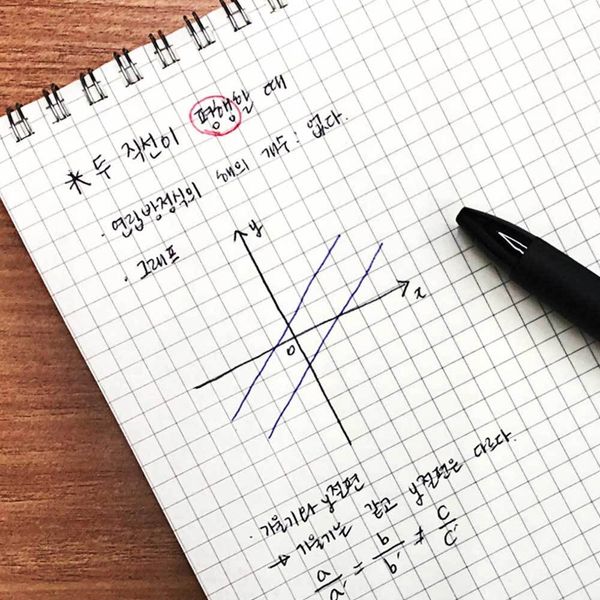 * 두 직선이 평행할 때
· 연립방정식의 해의 개수: 없다.
· 그래프
y
x
0
· 기울기와 y절편
→ 기울기는 같고 y절편은 다르다.
a/a' = b/b' ≠ c/c'